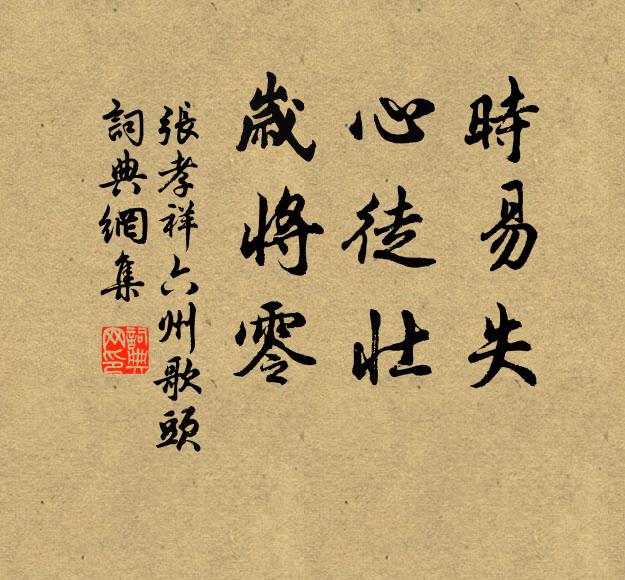 時易失
心徒壯
歲將零
張孝祥六州歌頭
詞典網集
詞典网印